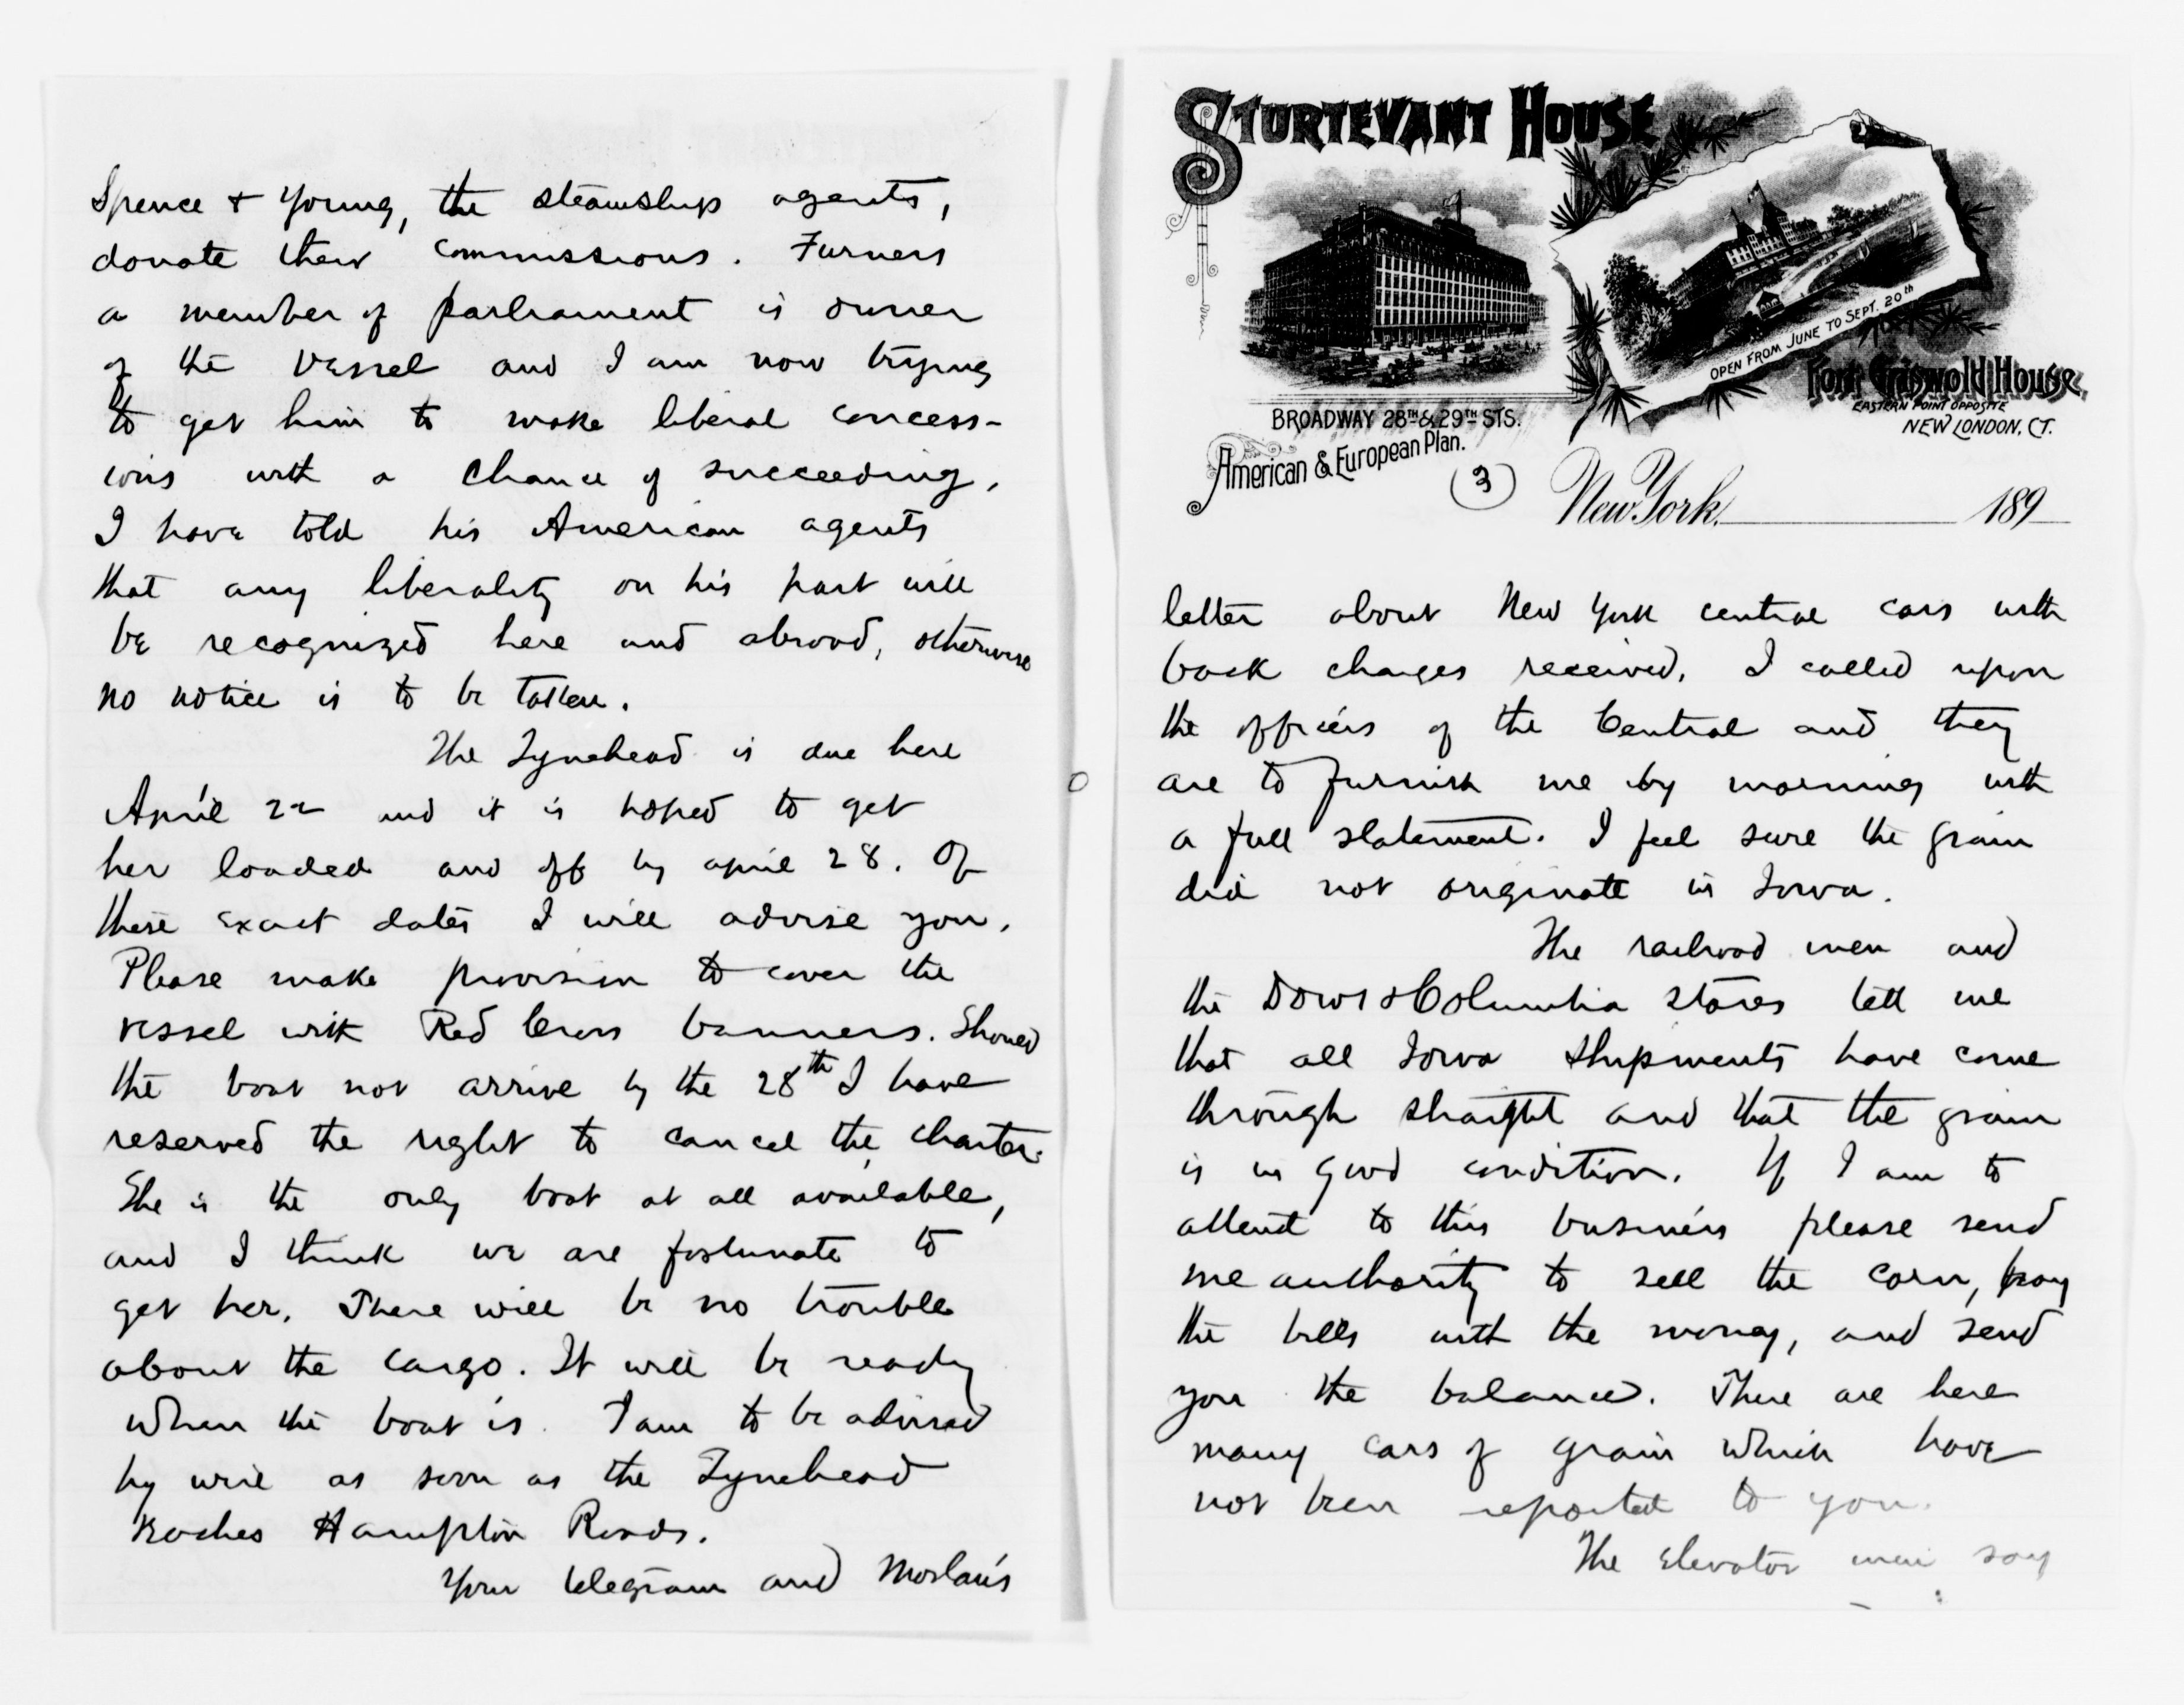 Spence & Young, the steamship agents,
donate their commissions. Furness
a member of parliament is owner
of the vessel and I am now trying
to get him to make liberal concess-
ions with a chance of succeeding.
I have told his American agents
that any liberality on his part will
be recognized here and abroad, otherwise
no notice is to be taken.
The Tynehead is due here
April 22 and it is hoped to get
her loaded and off by april 28. Of
these exact dates I will advise you.
Please make provision to cover the
vessel with Red Cross banners. Should
the boat not arrive by the 28th I have
reserved the right to cancel the charter.
She is the only boat at all available,
and I think we are fortunate to
get her. There will be no trouble
about the cargo. It will be ready
when the boat is. I am to be advised
by wire as soon as the Tynehead
reaches Hampton Roads.
Your telegram and Morlan's
STURTEVANT HOUSE
OPEN FROM JUNE TO SEPT. 20th
Fort Griswold House.
EASTERN POINT OPPOSITE
NEW LONDON, CT.
BROADWAY 28TH & 29TH STS.
American & European Plan.
(3)
New York, 189
letter about New York central cars with
back charges received. I called upon
the officers of the Central and they
are to furnish me by morning with
a full statement. I feel sure the grain
did not originate in Iowa.
The railroad men and
the Dows & Columbia stores tell me
that all Iowa shipments have come
through straight and that the grain
is in good condition. If I am to
attend to this business please send
me authority to sell the corn, pay
the bills with the money, and send
you the balance. There are here
many cars of grain which have
not been reported to you.
The elevator men say